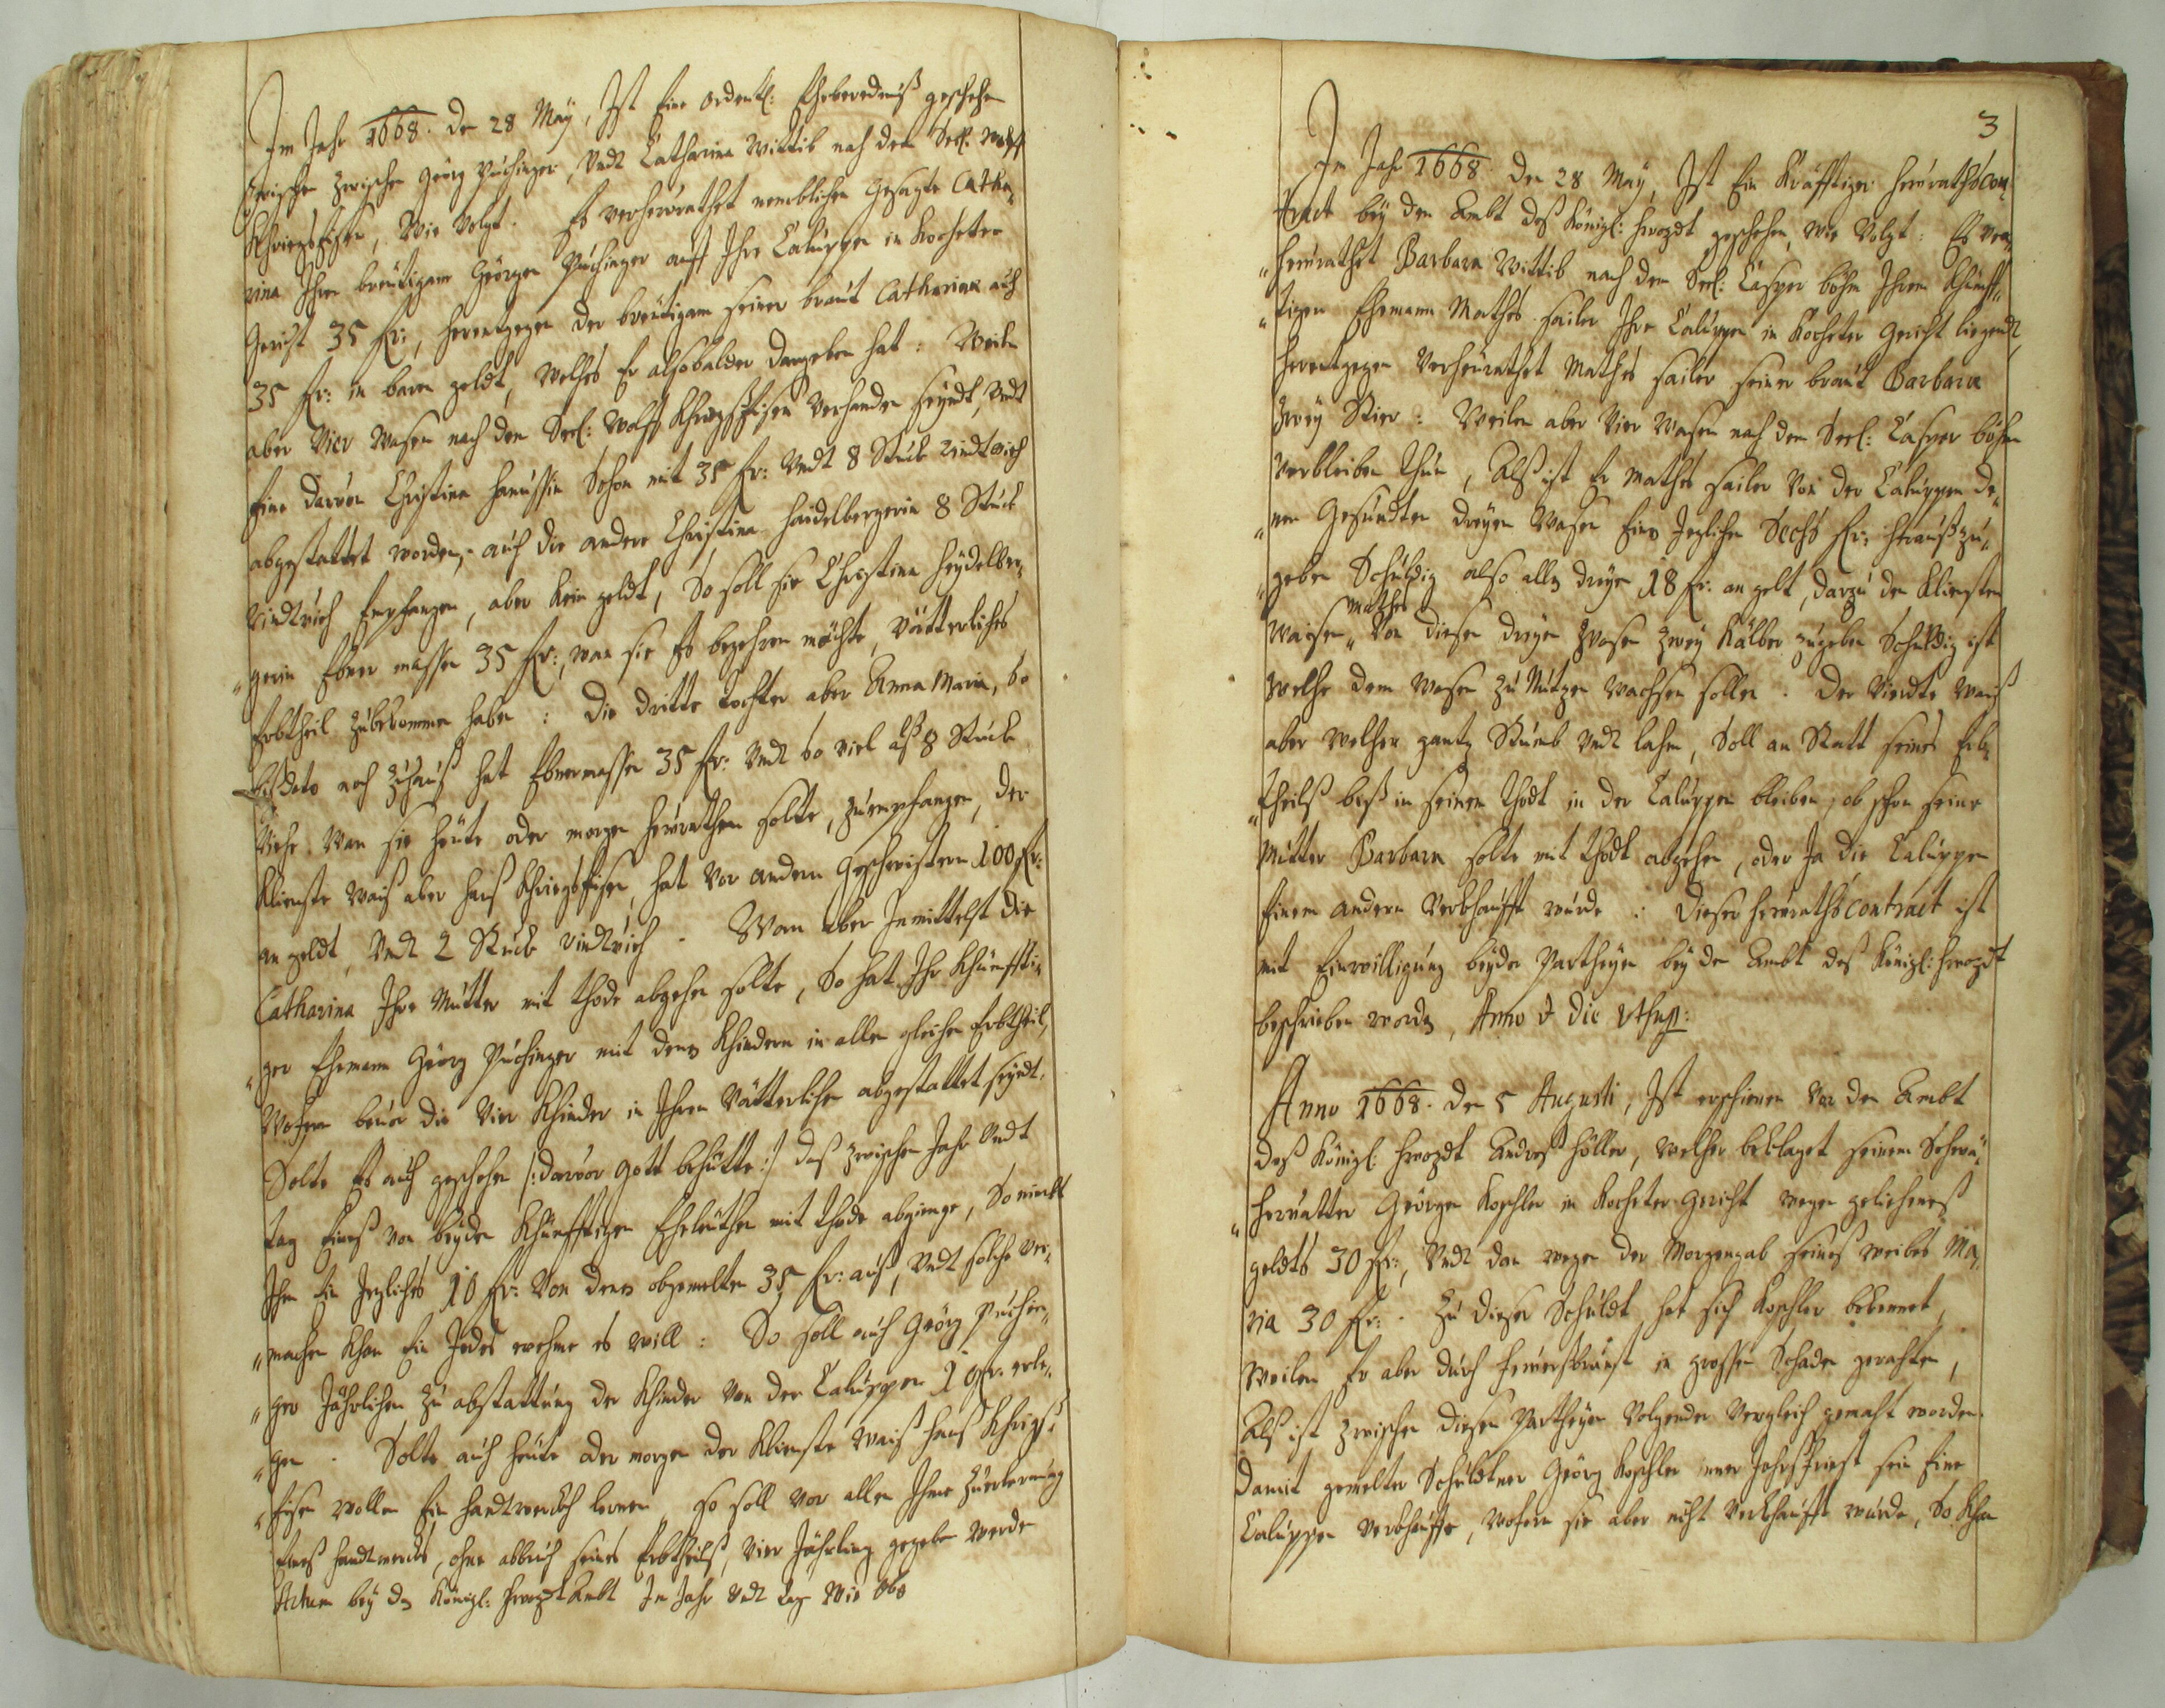 Im Jahr 1668. den 28 May, Ist Eine ordentl: Eheberedniß geschehen
zwischen Geörg Puchinger, Vndt Catharina Wittib nach dem Seel: Wolff
Khriegseisen, Wie Volgt. Es verheurathet nemblichen Gesagte Catha„
rina Ihren breutigam Geörgen Puchinger auff Ihre Caluppen in Kocheter
Gericht 35 fr:, herentgegen der breutigam seiner braut Catharina auch
35 fr: in baren geldt, welches Er alsobalden dargeben hat: Weilen
aber Vier Waysen nach dem Seel: Wolff Khriegseisen Verhanden seyndt, Vndt
Eine darvon Christina Schon mit 35 fr: Vndt 8 Stuck Rindtvieh
abgestattet worden, auch die andere Christina Haidelbergerin 8 Stuck
Rindtvieh Empfangen, aber Kein geldt, So soll sie Christina Heydelber„
„gerin Ebner massen 35 fr:, wan sie Es begehren möchte, Vätterliches
Erbtheil zubekommen haben: Die dritte tochter aber Anna Maria, so
bißdato noch Zuhauß hat Ebnermassen 35 fr: Vndt so viel alß 8 Stuck
Viehe Wan sie heute oder morgen heurathen solte, zuempfangen, der
Klienste Waiß aber Hanß Khriegseisen, hat vor andern Geschwistern 100 fr:
an geldt, Vndt 2 Stuck Rindtvieh. Wan aber Inmittelst die
Catharina Ihre Mutter mit thode abgehen solte, So hat Ihr Khünffti„
„ger Ehemann Geörg Puchinger mit denen Khindern in allen gleichen Erbtheil,
Wofern bevor die Vier Khinder in Ihren Vätterlichen abgestattet seyndt.
Solte Es auch geschehen /:darvor Gott behütte:/ daß zwischen Jahr Vndt
tag Eineß von beyden Khünfftigen Eheleuthen mit thode abgienge, So nimbt
Ihm Ein Jegliches 10 fr: Von denen obgemelten 35 fr: auß, Vndt solche ver„
„machen Khan Ein Jedes wehme es will: So soll auch Geörg Puchin„
„ger Jährlichen zu abstattung der Khinder von der Caluppen 10 fr: erle„
„gen. Solte auch heute oder morgen der Klienste Waiß Hanß Khriegs„
„Eisen wollen Ein handtwerckh lernen, so soll vor allen Ihme zuerlernung
Eineß handtwercks, ohne abbruch seines Erbtheilß, Vier Jährling gegeben werden
Actum bey dem Königl: Hwozdt Ambt Im Jahr Vndt tag Wie oben
3
Im Jahr 1668. den 28 May, Ist Ein Kräfftiger heurathscon„
tract bey dem Ambt deß Königl: Hwozdt geschehen, wie Volgt: Es ver„
„heurathet Barbara Wittib nach dem Seel: Casper böhm Ihrem Khünff„
„tigen Ehemann Mathes Sailer Ihre Caluppen in Kocheter Gericht liegendt,
herentgegen Verheurathet Mathes Sailer seiner braut Barbara
Zwey Stier: Weilen aber Vier Waysen nach dem Seel: Casper böhm
Verbleiben thun, Alß ist Er Mathes Sailer Von der Caluppen de„
„nen Gesundten dreyen Waysen Einen Jeglichen Sechs fr: herauß zu„
„geben Schuldig also allen dreyen 18 fr: an gelt, darzu den Kliensten
Waisen Mathes Von diesen dreyen Waysen zwey Kälber zugeben Schuldig ist
Welche dem Waysen zu Nutzen Wachsen sollen. Der Vierdte Waiß
aber welcher gantz Stumb Vndt lahm, Soll an Statt seines Erb„
„theilß biß in seinen thodt in der Caluppen bleiben, ob schon seine
Mutter Barbara solte mit thodt abgehen, oder Ja die Caluppen
Einem andern Verkhaufft wurde: Dieser heurathscontract ist
mit Einwilligung beyder Partheyen bey dem Ambt deß Königl: Hwozdt
beschrieben worden, Anno & die ut supr:
Anno 1668. den 5 Augusti, Ist erschienen Vor dem Ambt
deß Königl: Hwozdt Andreß Höller, welcher beklaget seinem Schwä„
„hervatter Geörgen Koschler in Kocheter Gericht wegen gelieheneß
geldts 30 fr:, Vndt dan wegen der Morgengab seines weibes Ma„
ria 30 fr:. Zu dieser Schuldt hat sich Koschler bekennet,
Weilen Er aber durch feuersbrunst in grossen Schaden gerathen,
Alß ist zwischen diesen Partheyen Volgender Vergleich gemacht worden.
Damit gemelter Schuldtner Geörg Koschler inner Jahrsfrist sein Eine
Caluppen Verkhauffe, wofern sie aber nicht Verkhaufft wurde, So Khan